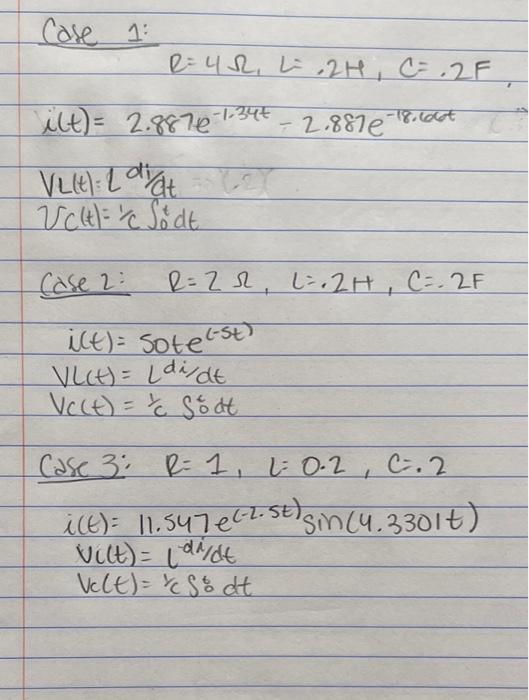 Case 1:
R=4Ω, L=.2H, C=.2F,
i(t)= 2.887e^-1.34t - 2.887e^-18.66t
VL(t)=L di/dt
Vc(t)=1/c ∫0^t dt
Case 2: R=2Ω, L=.2H, C=.2F
i(t)= 50te^(-5t)
VL(t)= L di/dt
Vc(t)= 1/c ∫0^t dt
Case 3: R=1, L=0.2, C=.2
i(t)= 11.547e^(-2.5t) sin(4.3301t)
VL(t)= L di/dt
Vc(t)= 1/c ∫0^t dt